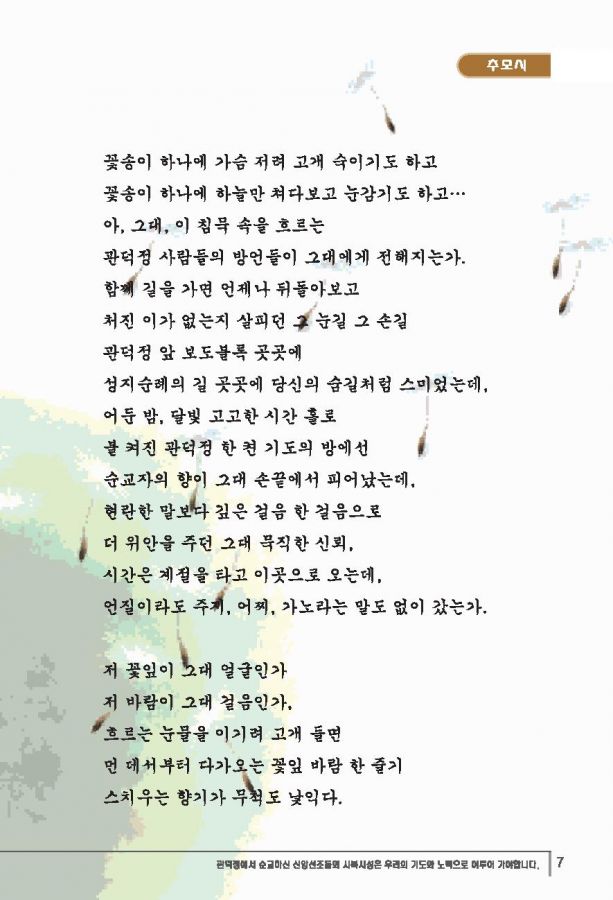 추모시
꽃송이 하나에 가슴 저려 고개 숙이기도 하고
꽃송이 하나에 하늘만 쳐다보고 눈감기도 하고…
아, 그대, 이 침묵 속을 흐르는
관덕정 사람들의 방언들이 그대에게 전해지는가.
함께 길을 가면 언제나 뒤돌아보고
처진 이가 없는지 살피던 그 눈길 그 손길
관덕정 앞 보도블록 곳곳에
성지순례의 길 곳곳에 당신의 숨길처럼 스미었는데,
어둔 밤, 달빛 고고한 시간 홀로
불 켜진 관덕정 한 켠 기도의 방에선
순교자의 향이 그대 손끝에서 피어났는데,
현란한 말보다 깊은 걸음 한 걸음으로
더 위안을 주던 그대 묵직한 신뢰,
시간은 계절을 타고 이곳으로 오는데,
언질이라도 주지, 어찌, 가노라는 말도 없이 갔는가.
저 꽃잎이 그대 얼굴인가
저 바람이 그대 걸음인가,
흐르는 눈물을 이기려 고개 들면
먼 데서부터 다가오는 꽃잎 바람 한 줄기
스치우는 향기가 무척도 낯익다.
관덕정에서 순교하신 신앙선조들의 시복시성은 우리의 기도와 노력으로 이루어 가야합니다. 7